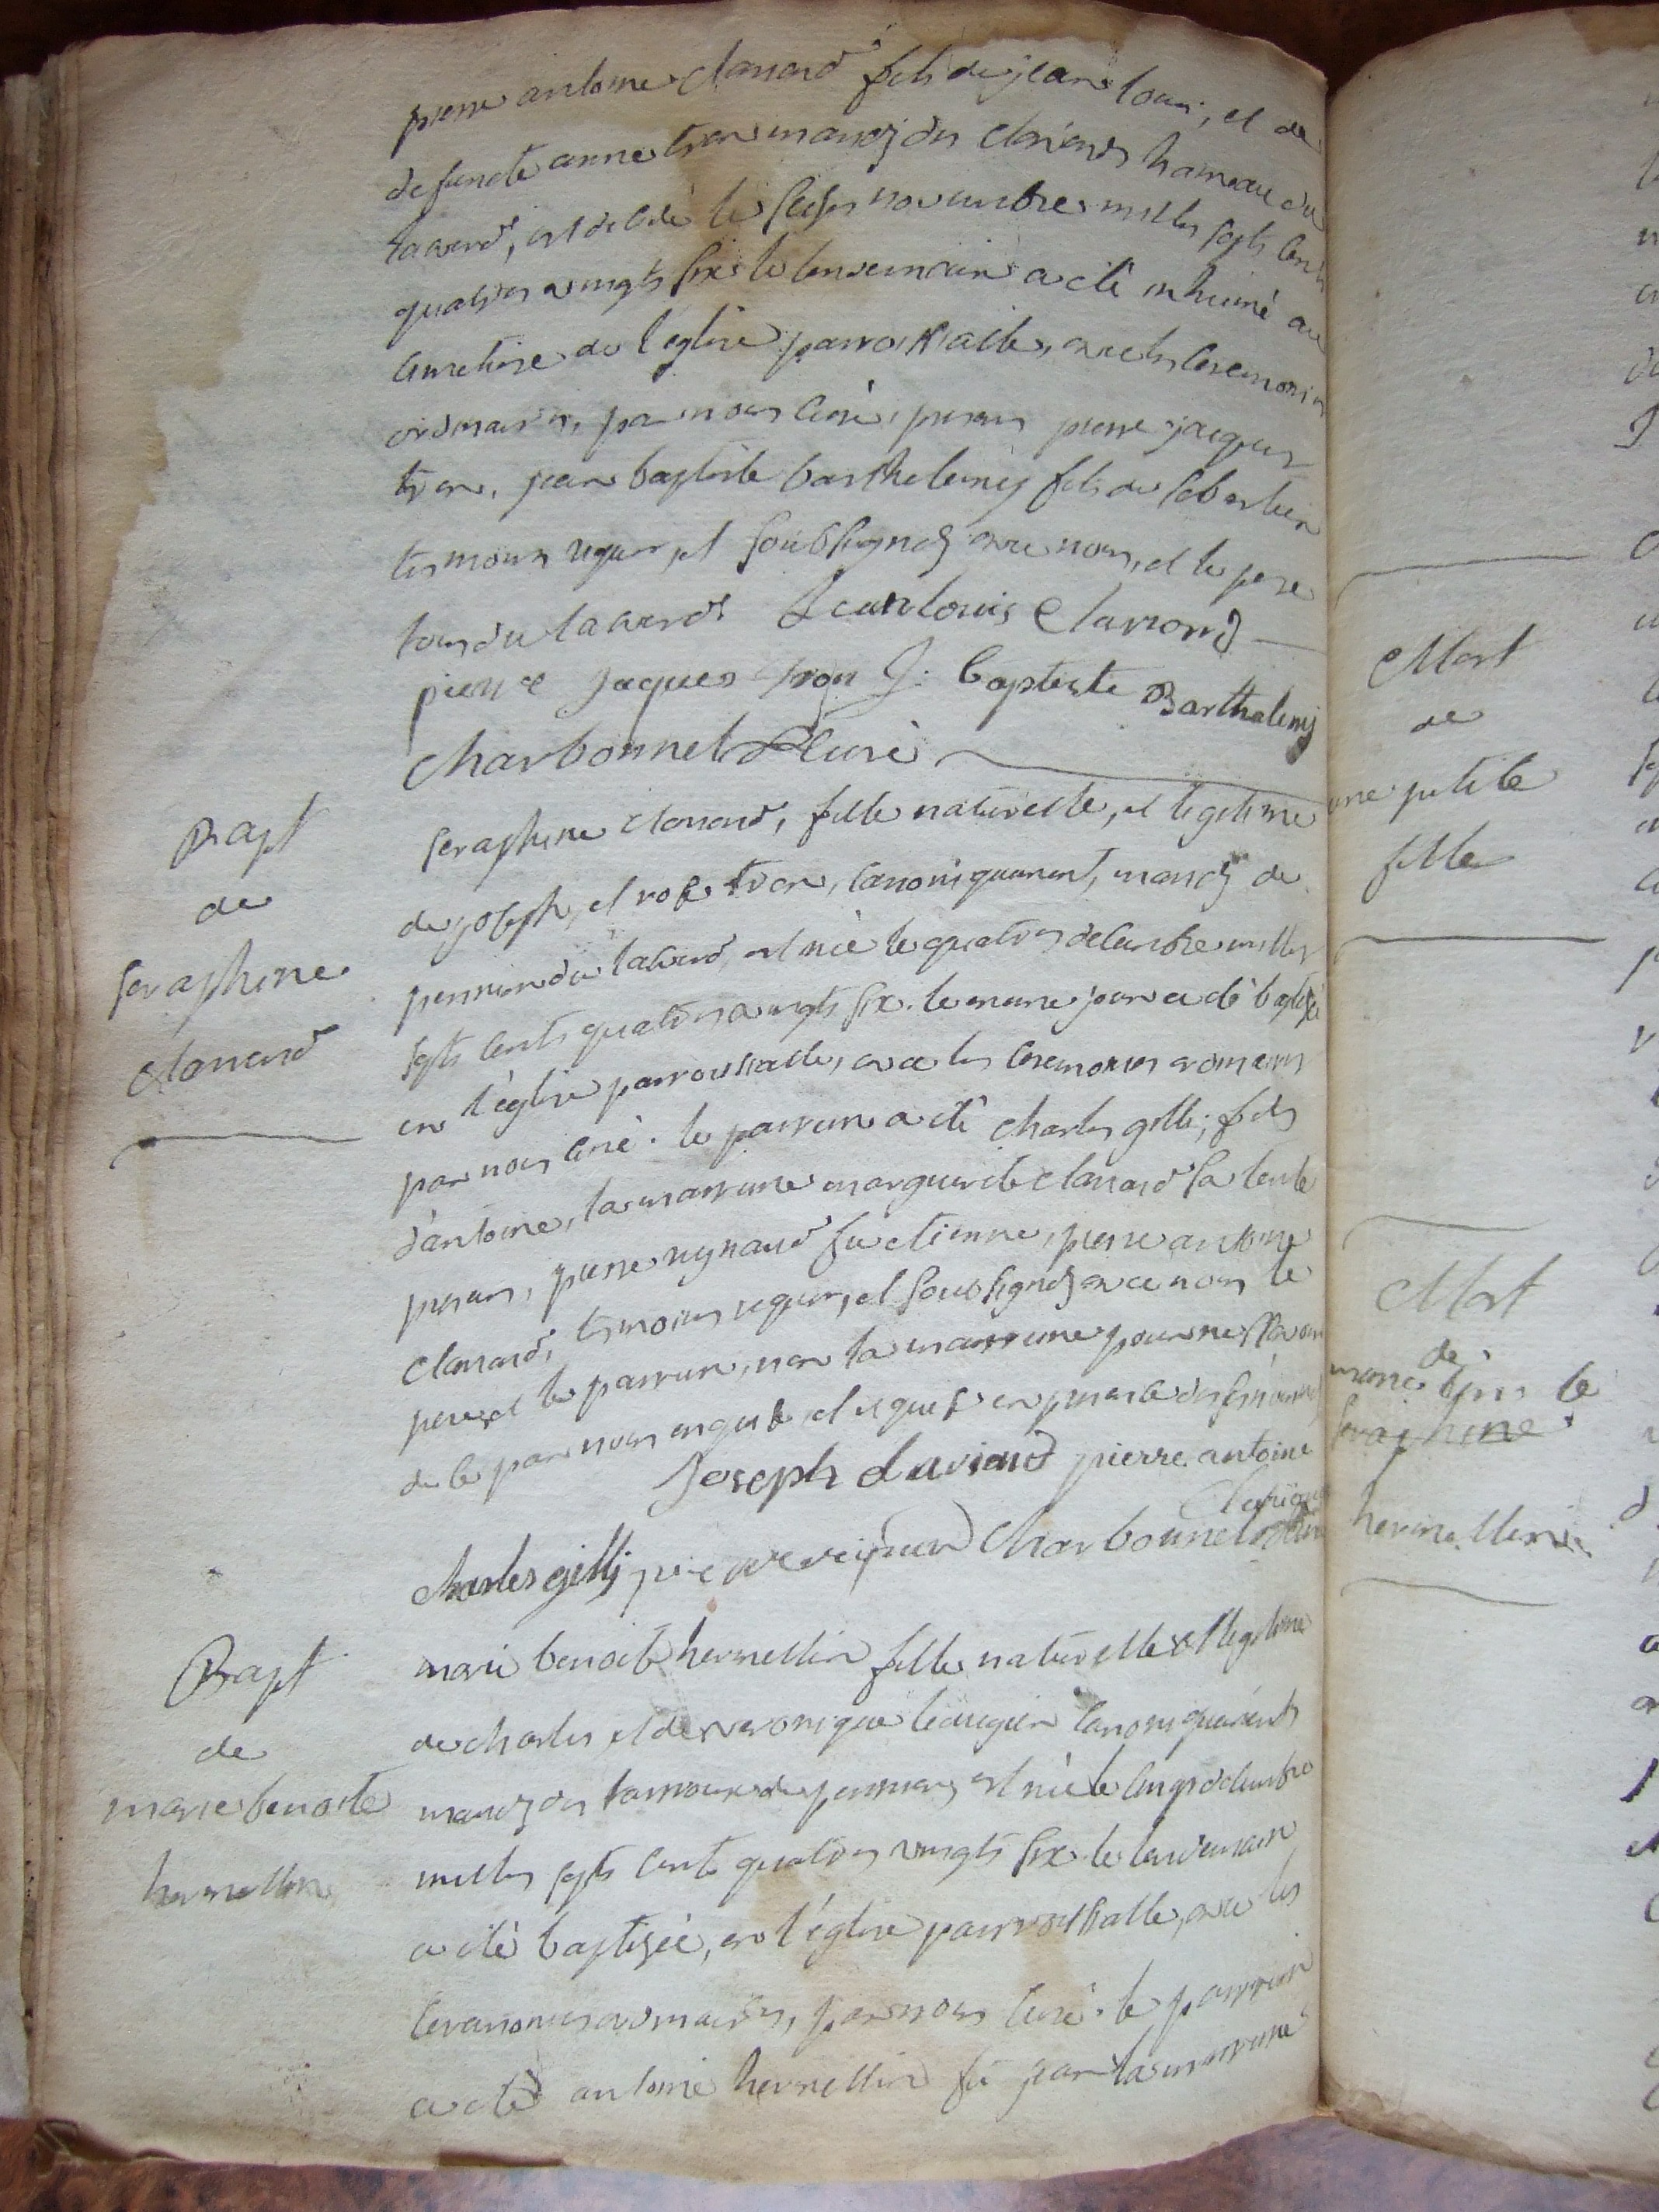 pierre antoine clariond fils de jean louis, et de
defuncte anne tron mariez des clarionds hameau du
laverd, est decedé le seize novembre milles septs cents
quatres vingts six le lendemain a eté inhumé au
cimetiere de l'eglise parroissialle, avec les ceremonies
ordinaires, par nous curé, presens pierre jacques
tron, jean baptiste barthelemy fils de sebastien
temoins requis, et soussignez avec nous, et le pere
tous du laverd Jean louis Clariond
pierre Jaques tron J. baptiste Barthelemy
Charbonnel Curé
Bapt
de
seraphine
clariond
seraphine clariond, fille naturelle, et legitime
de joseph, et rose tron, canoniquement, mariez de
du laverd, est née le quatres decembre milles
septs cents quatres vingts six. le meme jour a eté baptisée
en l'église parroissialle, avec les ceremonies ordinaires
par nous curé. le parrain a eté charles gilli, fils
d'antoine, la marraine marguerite clariond sa tente
presens, pierre reynaud fu etienne, pierre antoine
clariond, temoins requis, et soussignez avec nous le
pere, et le parrain, non la marraine pour ne sçavoir
de ce par nous enquise, et requise en presence des
Joseph clariond pierre antoine
clariond
charles gilli Charbonnel Curé
Bapt
de
marie benoite
hermellin
marie benoite hermellin fille naturelle et legitime
de charles, et de veronique leaugier canoniquement
mariez des est née le cinqs decembre
milles septs cents quatres vingts six. le lendemain
a eté baptisée, en l'église parroissialle, avec les
ceremonies ordinaires, par nous curé. le parrain
a eté antoine hermellin fu jean la marraine
Mort
de
une petite
fille
Mort
de
marie
seraphine
hermellin